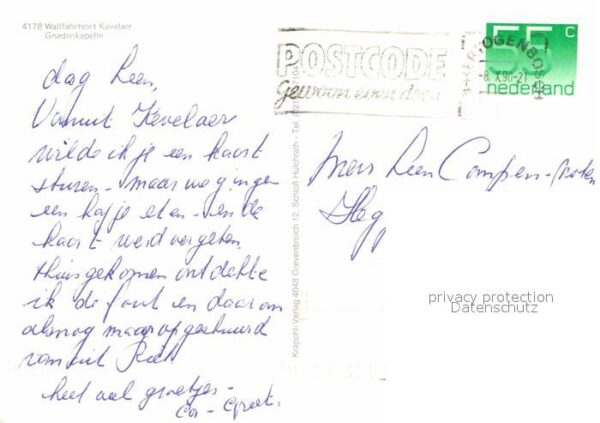 4178 Wallfahrtsort Kevelaer
Gnadenkapelle
dag Leen,
Vanuit Kevelaer
wilde ik je een kaart
sturen - maar we gingen
een hapje eten - en de
kaart werd vergeten.
thuisgekomen ontdekte
ik de fout en daarom
alsnog maar opgestuurd
vanuit
heel veel groetjes -
Cor - Greet.
Kraporti-Verlag 4048 Grevenbroich 12, Schloß Hülchrath - Tel.
POSTCODE
Gewoon even doen
'S-HERTOGENBOSCH
-8.X.90-21
55 C
nederland
Mevr Leen
Heg
privacy protection
Datenschutz